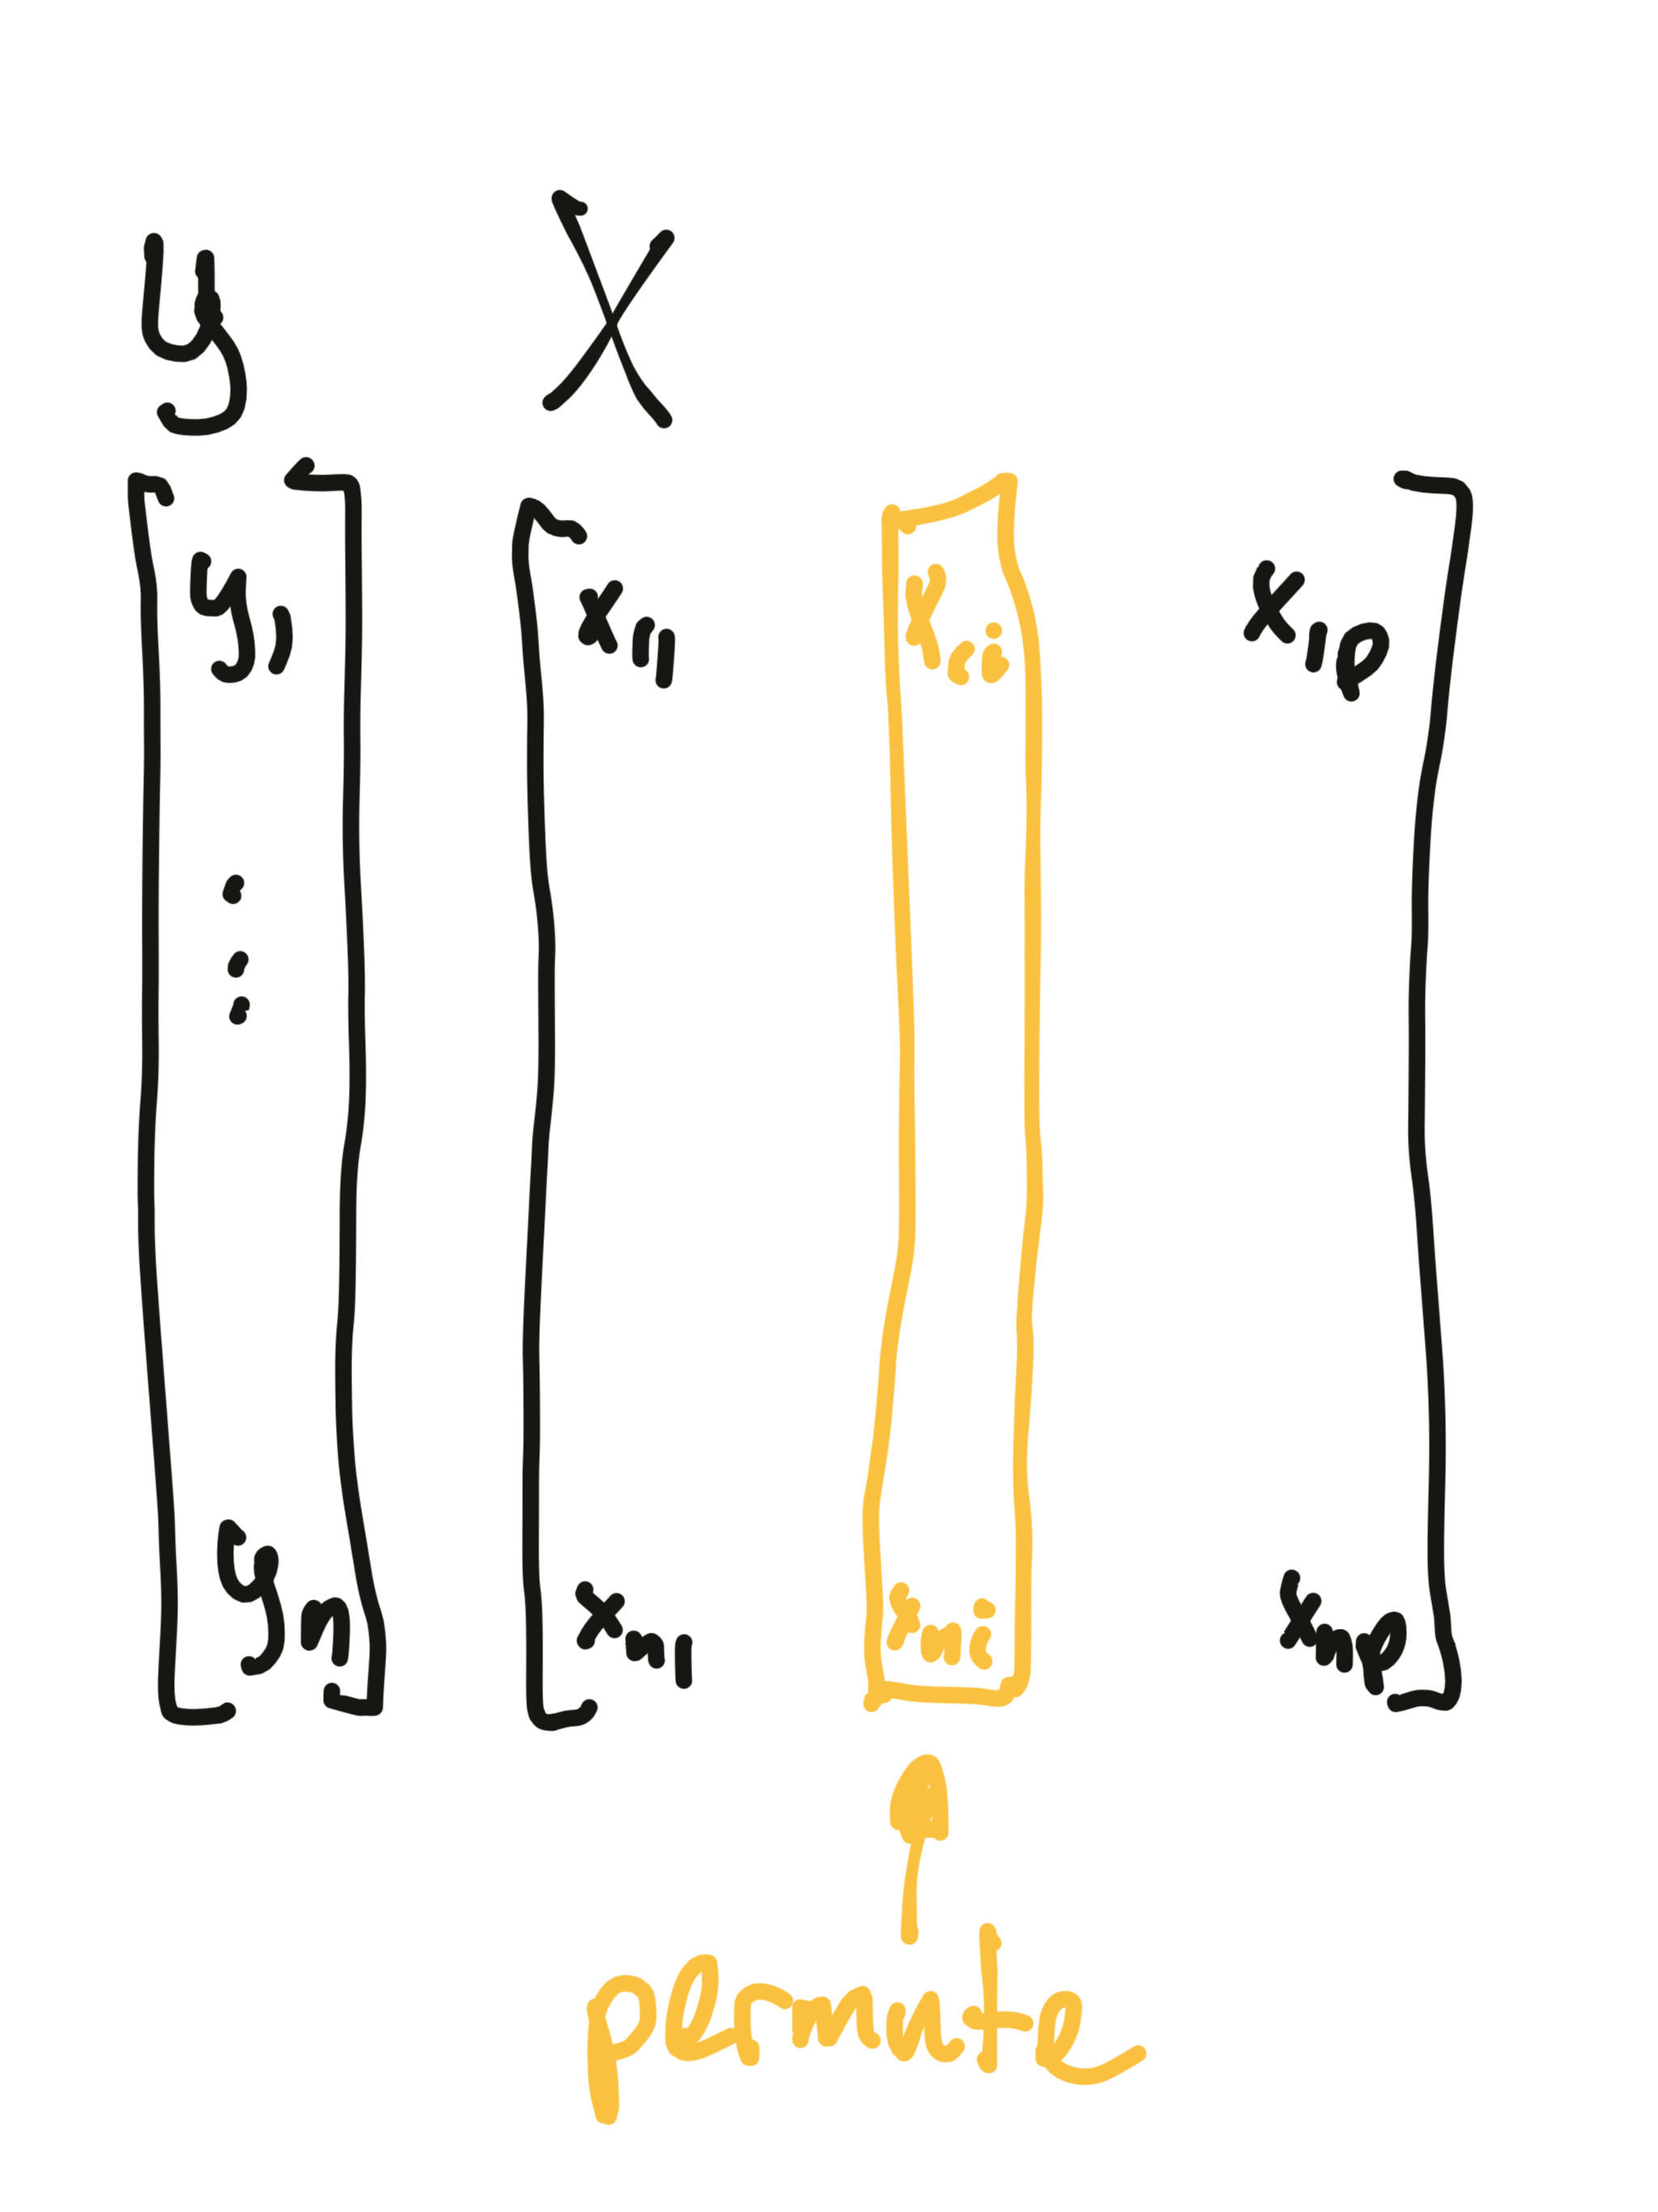 y X
y1 x11 x1i x1p
⋮
yn xn1 xni xnp
permute